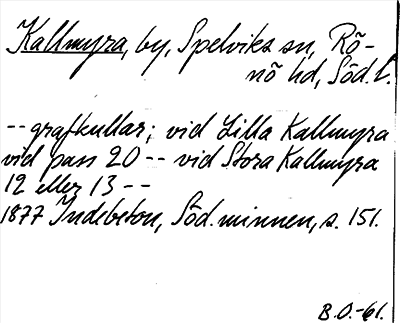 Kallmyra, by, Spelviks sn, Rö-
nö hd, Söd. l.
-- grafkullar; vid Lilla Kallmyra
vid pass 20 -- vid Stora Kallmyra
12 eller 13 --
1877 Indebetou, Söd. minnen, s. 151.
B.O.-61.